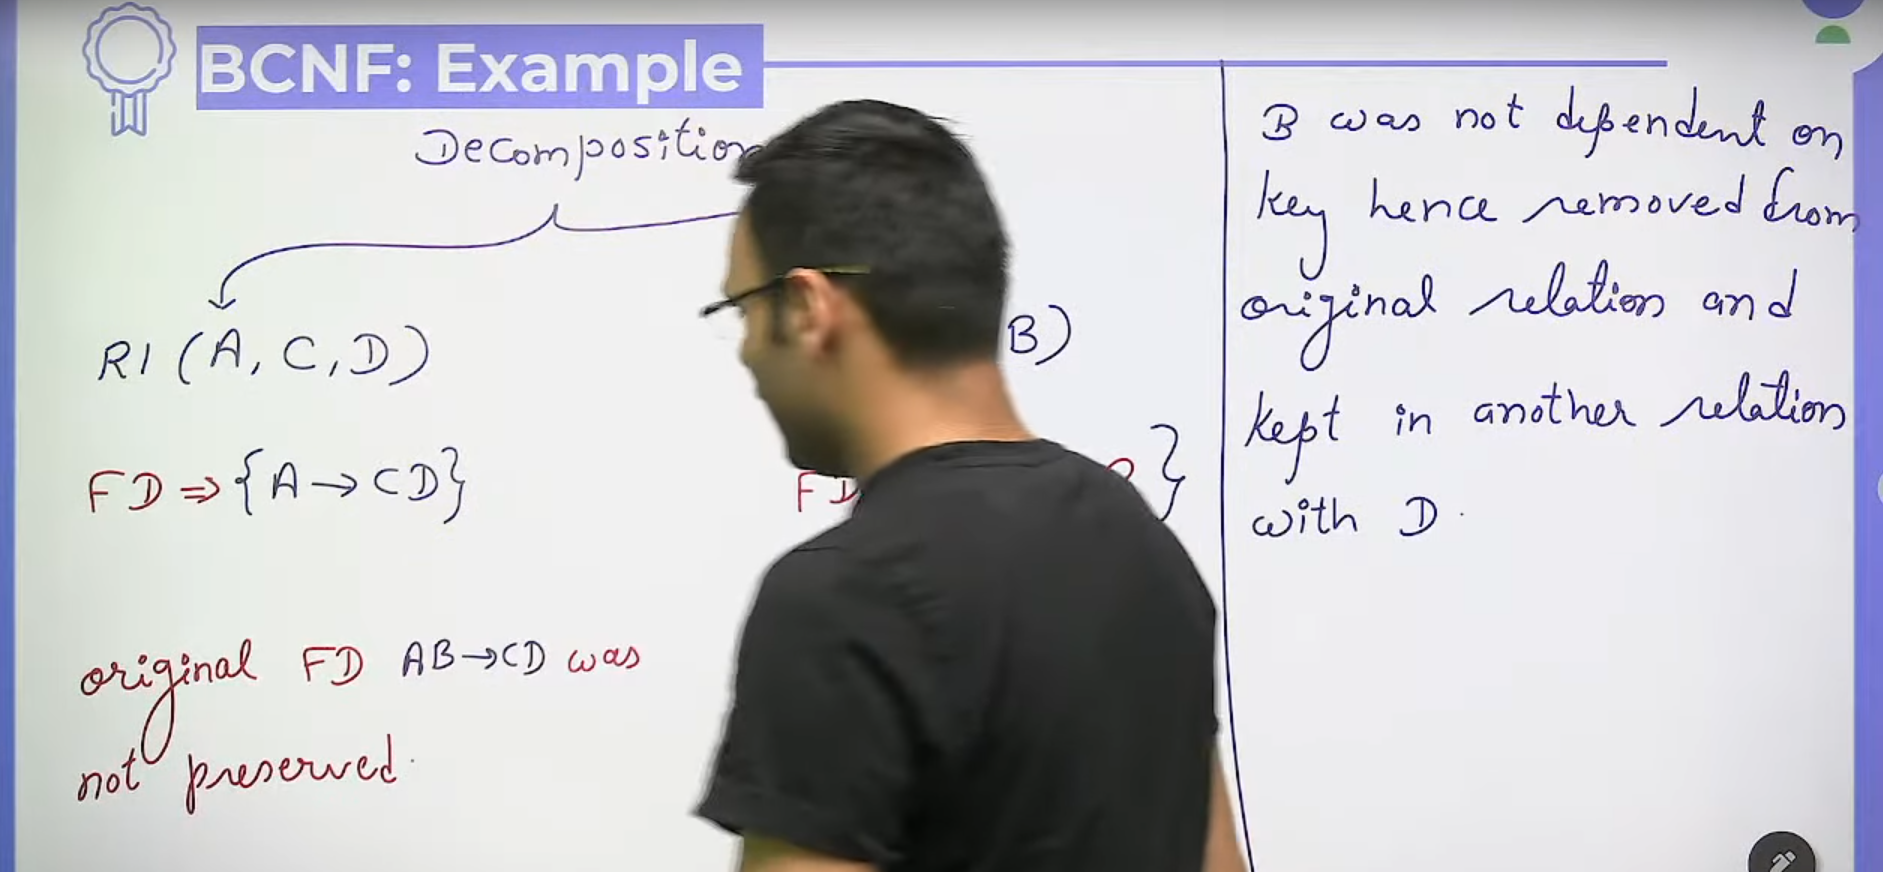 BCNF: Example
Decomposition
R1 (A, C, D)
B)
FD ⇒ {A → CD}
FD
}
original FD AB→CD was
not preserved.
B was not dependent on
key hence removed from
original relation and
kept in another relation
with D.